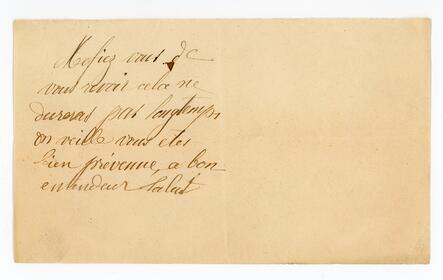 Mefiez vous de
vous revoir cela ne
dureras pas longtemps
on veille vous etes
bien prévenue, a bon
entendeur Salut